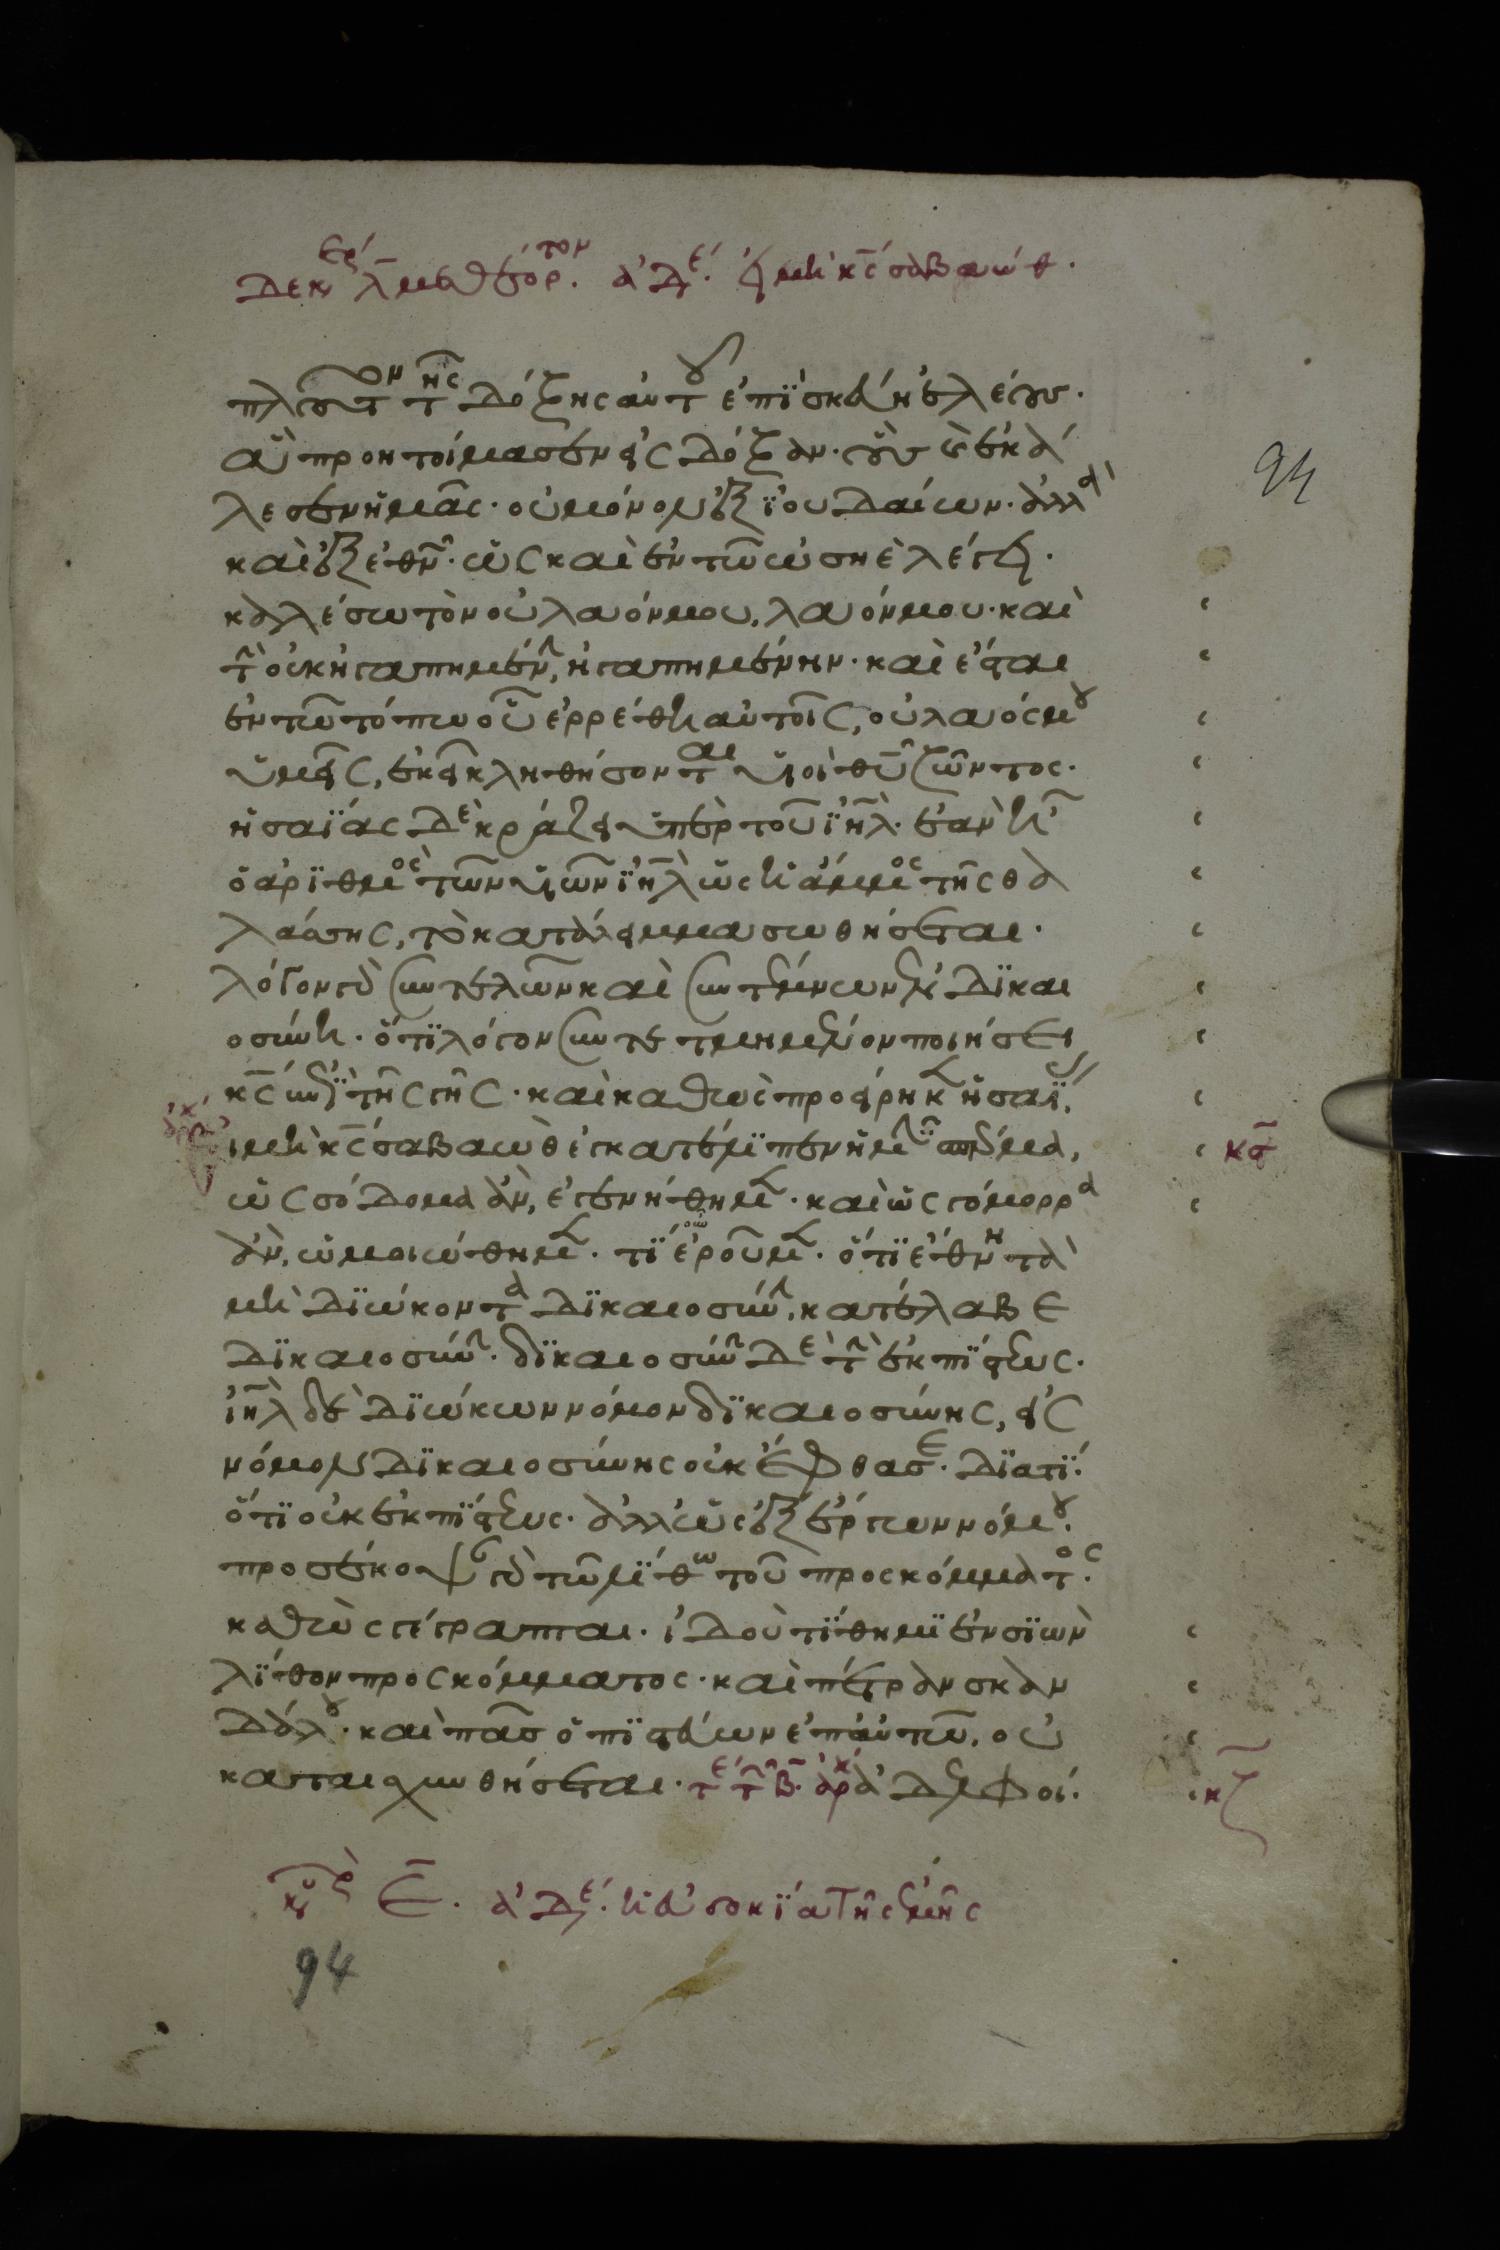 πλοῦτον τῆς δόξης αὐτοῦ ἐπϊ σκεύη ἐλέους.
ἃ προητοίμασεν εἰς δόξαν. οὓς ἐκά
λεσεν ἡμᾶς. οὐ μόνον ἐξ ϊουδαίων. ἀλλὰ
καὶ ἐξ ἐθνῶν. ὡς καὶ ἐν τῶ ὠσηὲ λέγει.
καλέσω τὸν οὐ λαόν μου, λαόν μου. καὶ
τὴν οὐκ ἠγαπημένην, ἠγαπημένην. καὶ ἔσται
ἐν τῶ τόπω οὗ ἐρρέθη αὐτοῖς, οὐ λαός μου
ὑμεῖς, ἐκεῖ κληθήσονται υἱοὶ θυ ζῶντος.
ἡσαΐας δὲ κράζει ὑπὲρ τοῦ ϊηλ. ἐὰν ἦ
ὁ ἀρϊθμὸς τῶν υἱῶν ϊηλ ὡς ἡ ἄμμος τῆς θα
λάσσης, τὸ κατάλειμμα σωθήσεται.
λόγον γὰρ συντελῶν καὶ συντέμνων ἐν δϊκαι
οσύνη. ὅτϊ λόγον συντετμημένον ποιήσει
κς ἐπὶ τῆς γῆς. καὶ καθὼς προείρηκεν ἡσαΐας.
εἰ μὴ κς σαβαὼθ ἐγκατέλϊπεν ἡμῖν σπέρμα,
ὡς σόδομα ἂν, ἐγενήθημεν. καὶ ὡς γόμορρα
ἂν, ὡμοιώθημεν. τϊ οὖν ἐροῦμεν. ὅτϊ ἔθνη τὰ
μὴ δϊώκοντα δϊκαιοσύνην, κατέλαβε
δϊκαιοσύνην. δϊκαιοσύνην δὲ τὴν ἐκ πίστεως.
ἰηλ δὲ δϊώκων νόμον δϊκαιοσύνης, εἰς
νόμον δϊκαιοσύνης οὐκ ἔφθασε. δϊατϊ.
ὅτϊ οὐκ ἐκ πίστεως. ἀλλ' ὡς ἐξ ἔργων νόμου.
προσέκοψαν γὰρ τῶ λίθω τοῦ προσκόμματος.
καθὼς γέγραπται. ἰδοὺ τϊθημϊ ἐν σϊὼν
λίθον προσκόμματος. καὶ πέτραν σκαν
δάλου. καὶ πᾶσ ὁ πϊστεύων ἐπ' αὐτῶ, οὐ
καταισχυνθήσεται. τε τη β. ἀρχ ἀδελφοί.
κϛ
κζ
κυρ ε. ἀδε. ἡ εὐδοκϊα τῆς ἐμῆς
94
94